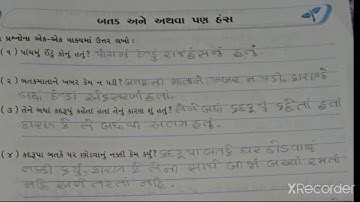 બતક અને અથવા પણ હંસ
પ્રશ્નોના એક-એક વાક્યમાં ઉત્તર લખો :
(૧) પાંચમું ઈંડું કોનું હતું? પાંચમું ઈંડું રાજહંસનું હતું.
(૨) બતકમાતાને ખબર કેમ ન પડી? બતકની માતાને ખબર ન પડી, કારણકે
બધા ઈંડા એકસરખા હતા.
(૩) તેને બધાં કદરૂપું કહેતાં હતાં તેનું કારણ શું હતું? તેને બધા કદરૂપું કહેતાં હતાં
કારણ કે તે બધાથી અલગ હતું.
(૪) કદરૂપા બતકે ઘર છોડવાનું નક્કી કેમ કર્યું? કદરૂપા બતકે ઘર છોડવાનું
નક્કી કર્યું, કારણ કે તેની સાથે બીજા બચ્ચાં રમતાં
નહિ અને તરતાં નહિ.
XRecorder